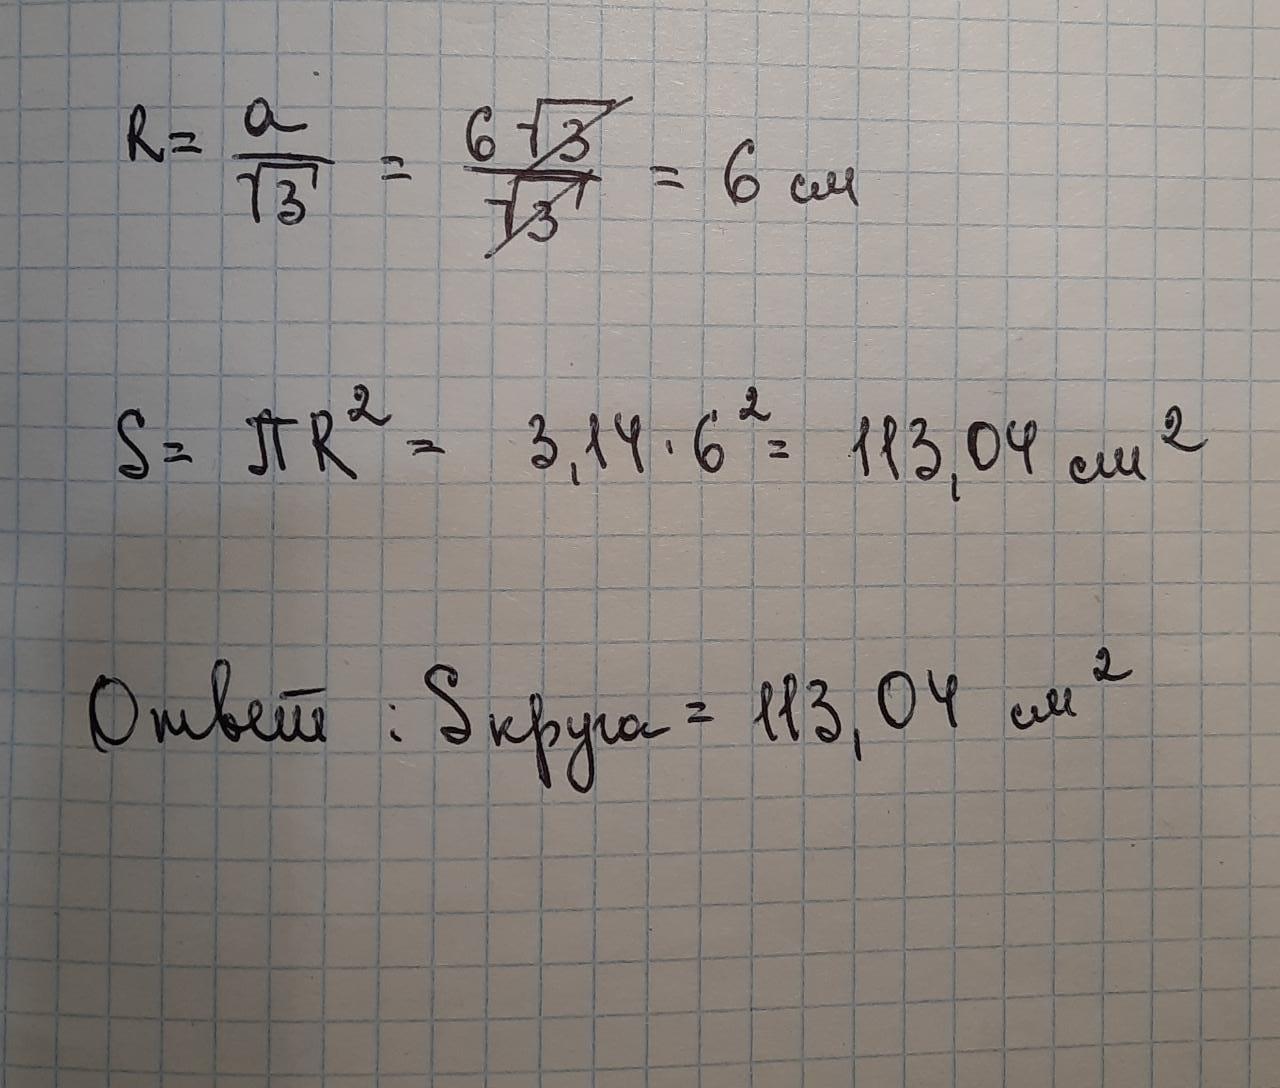 R = a/√3 = 6√3/√3 = 6 см
S = πR² = 3,14 · 6² = 113,04 см²
Ответ : Sкруга = 113,04 см²